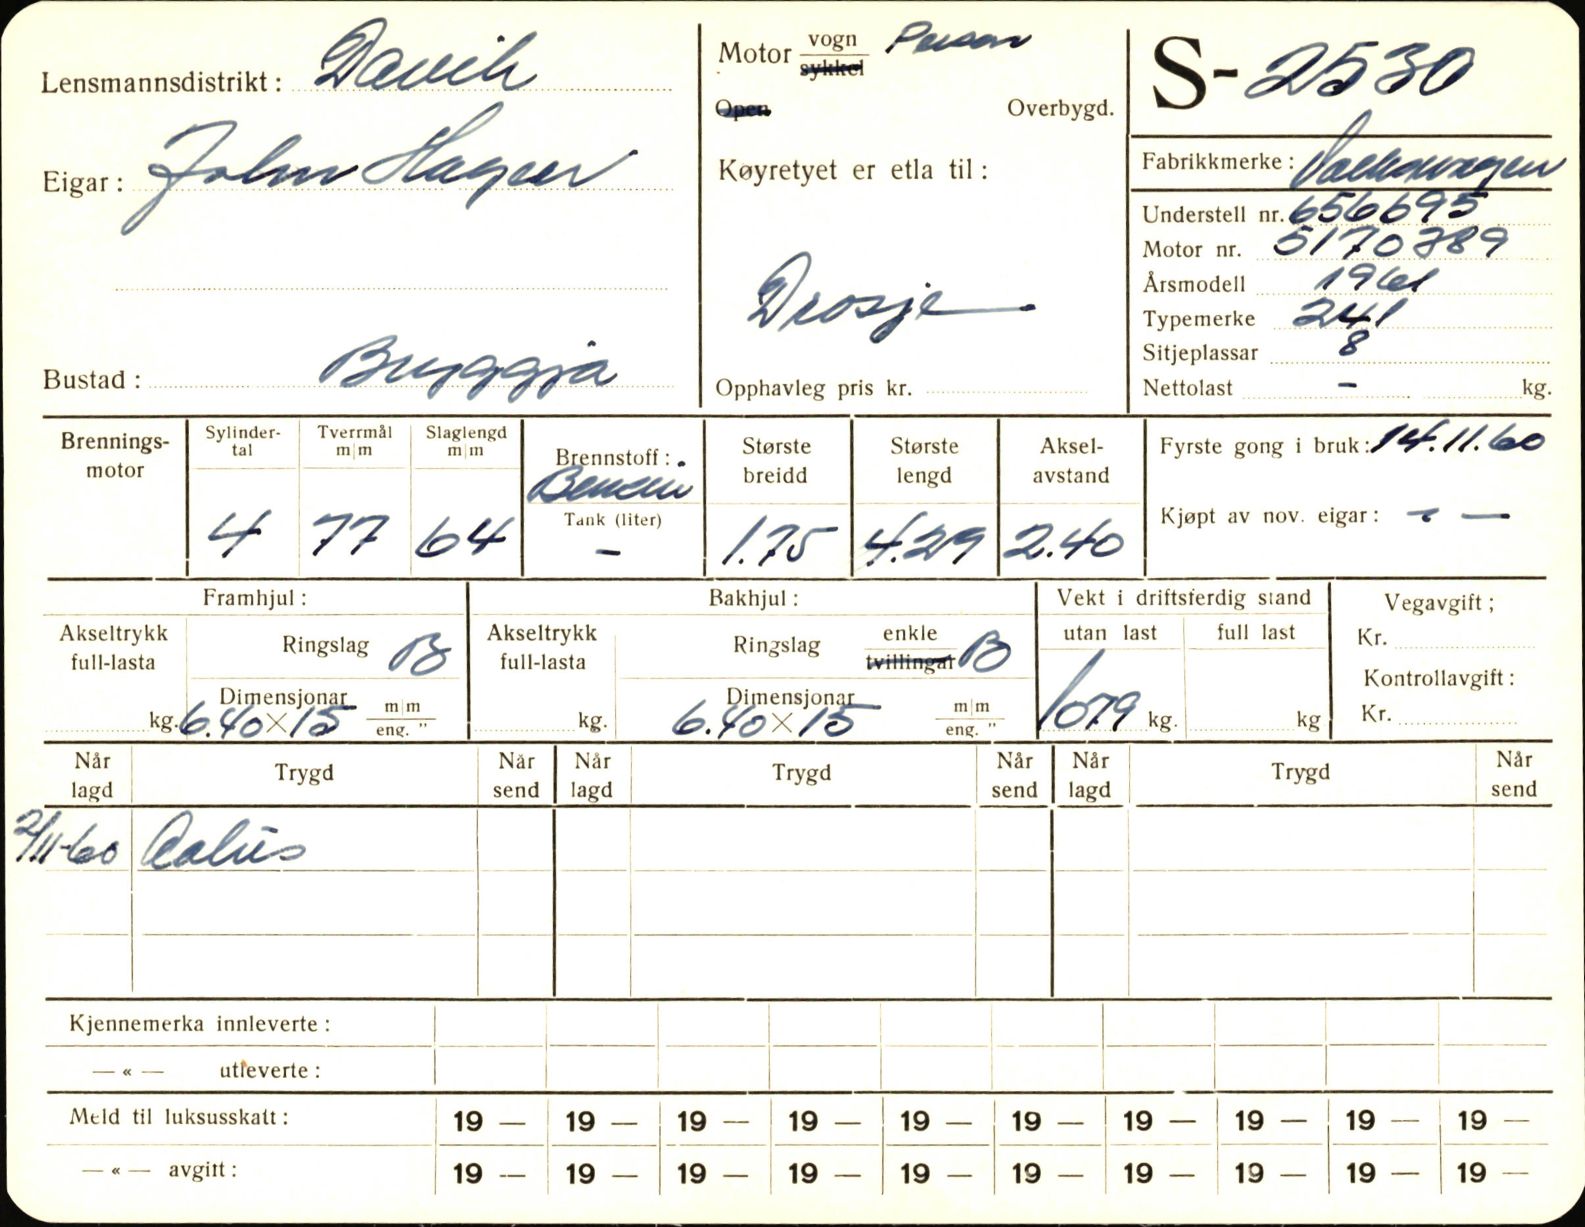 Lensmannsdistrikt: Davik
Eigar: John Hagen
Bustad: Bryggja
Motor vogn Person
sykkel
Open Overbygd.
Køyretyet er etla til:
Drosje
Opphavleg pris kr.
S-2530
Fabrikkmerke: Volkswagen
Understell nr. 656695
Motor nr. 5170389
Årsmodell 1961
Typemerke 241
Sitjeplassar 8
Nettolast - kg.
Brennings-
motor
Sylinder-
tal
4
Tverrmål
m|m
77
Slaglengd
m|m
64
Brennstoff:
Bensin
Tank (liter)
-
Største
breidd
1.75
Største
lengd
4.29
Aksel-
avstand
2.40
Fyrste gong i bruk: 14.11.60
Kjøpt av nov. eigar: - -
Framhjul:
Akseltrykk
full-lasta
kg.
Ringslag B
Dimensjonar
6.40 × 15 m|m
eng. "
Bakhjul:
Akseltrykk
full-lasta
kg.
Ringslag enkle
tvillingar B
Dimensjonar
6.40 × 15 m|m
eng. "
Vekt i driftsferdig stand
utan last full last
1079 kg. kg
Vegavgift;
Kr.
Kontrollavgift:
Kr.
Når
lagd Trygd Når
send Når
lagd Trygd Når
send Når
lagd Trygd Når
send
2/11-60
Kjennemerka innleverte:
— « — utleverte:
Meld til luksusskatt: 19 — 19 — 19 — 19 — 19 — 19 — 19 — 19 — 19 — 19 —
— « — avgift: 19 — 19 — 19 — 19 — 19 — 19 — 19 — 19 — 19 — 19 —